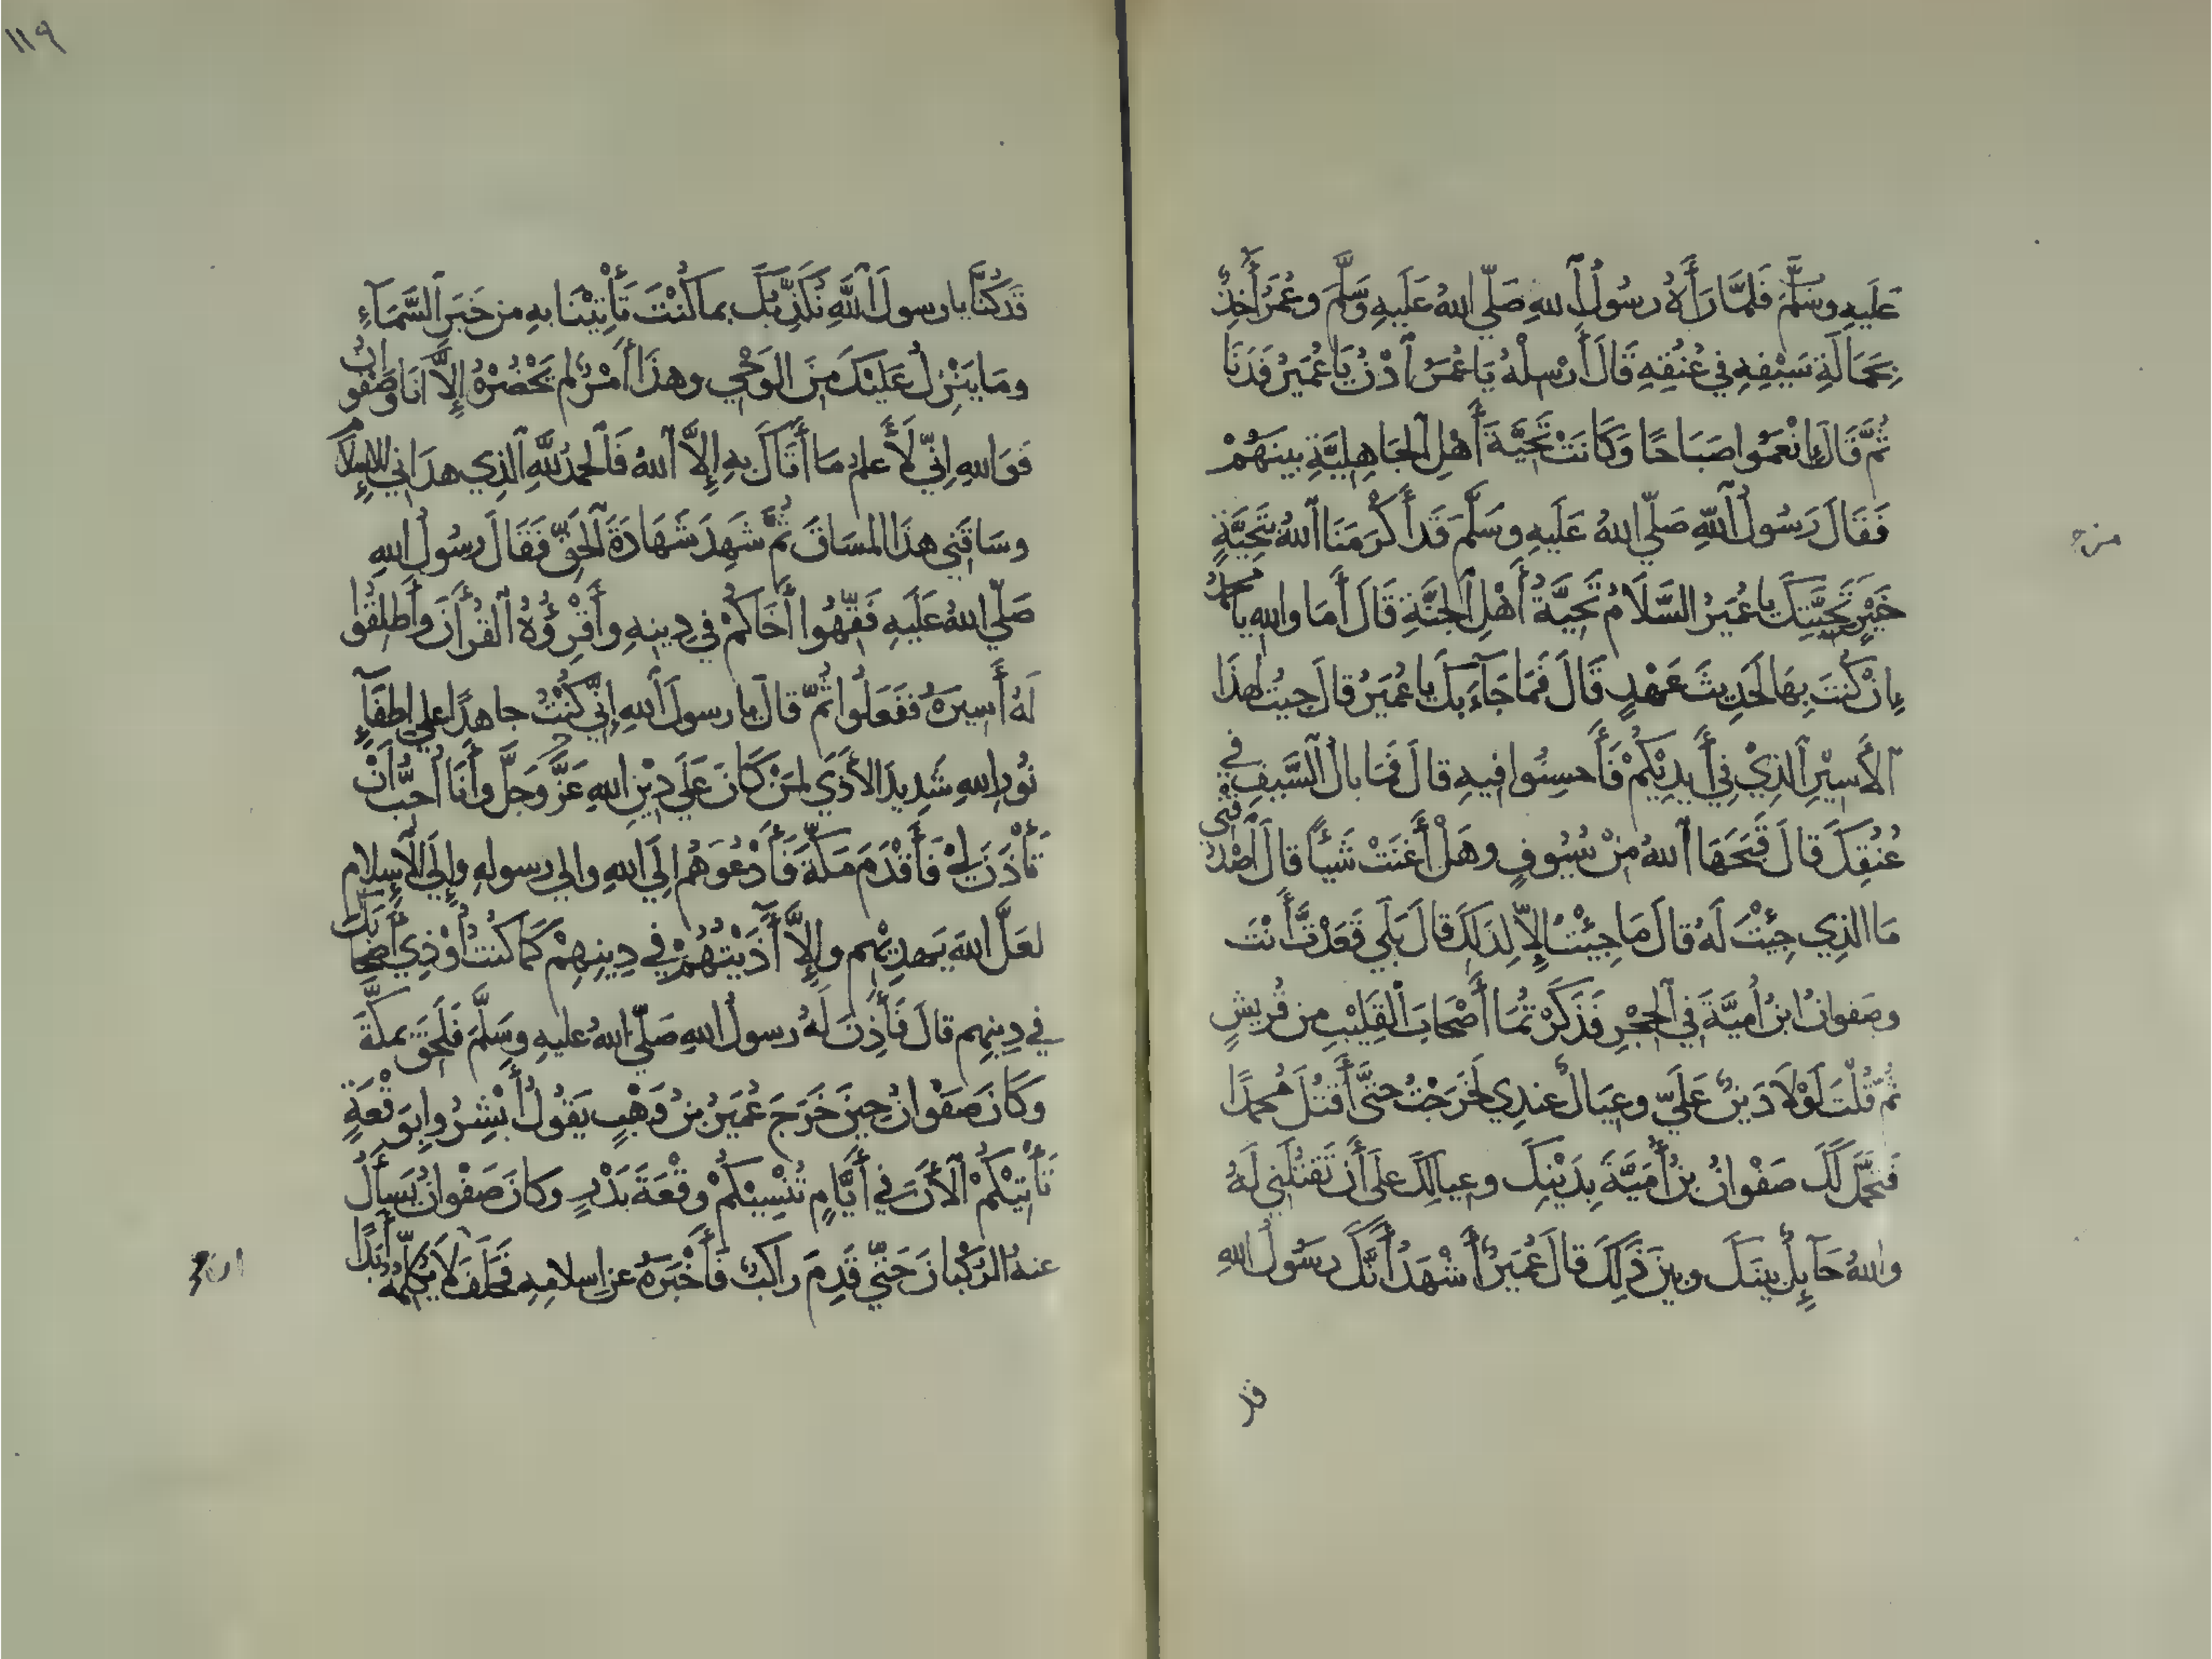 عَلَيهِ وسَلَّمَ فَلمَّا رَأَهُ رسُولُ اللهِ صَلّي اللهُ عَلَيهِ وَسَلَّمَ وعُمَرُ أَخِذٌ
بِحَمَالَةِ سَيْفِهِ في عُنُقِهِ قَالَ أَرْسِلْهُ يَا عُمَرُ اَدْنُ يَا عُمَيرُ فَدَنَا
ثُمَّ قَالَ إِنْعَمُوا صَبَاحًا وَكَانَتْ تَحِيَّةَ أَهْلِ الجَاهِلِيَّةِ بينَهُمْ
فَقَالَ رَسُولُ اللهِ صَلّي اللهُ عَلَيهِ وسَلَّمَ قَد أَكْرَمَنَا اللهُ بِتَحِيَّةٍ
خَيْرٍ من تَحِيَّتِكَ يا عُمَيرُ السَّلَامُ تَحِيَّةُ أَهْلِ الجَنَّةِ قَالَ أَمَا واللهِ يا محمدُ
إِنْ كُنتَ بِهَا لَحَدِيثَ عَهْدٍ قَالَ فَمَا جَآءَ بكَ يا عُمَيرُ قالَ جِيتُ لهذَا
الأَسِيْرِ الذِيْ فِي أَيدِيْكُمْ فَأَحسِنُوا فيهِ قالَ فَمَا بالُ السَّيفِ في
عُنُقِكَ قالَ قَبَّحَهَا اللهُ مِنْ سُيُوفٍ وهَلْ أَغنَتْ شَيئًا قالَ اَصْدُقني
مَا الذِي جِئْتَ لَهُ قالَ مَا جِيْتُ إِلاّ لِذَلِكَ قالَ بَلَي قَعَدْتَ أَنْتَ
وصَفوانُ ابنُ أُميَّةَ في الحِجْرِ فَذَكَرْتُمَا أَصْحَابَ القَلِيْبِ من قُريشٍ
ثُمّ قُلْتَ لَوْلَا دَينٌ عَلَيّ وعِيَالٌ عندِي لَخَرَجْتُ حتَّى أَقتُلَ مُحمدًا
فَتَحَمَّلَ لَكَ صَفْوانُ بنُ أُمَيَّةَ بِدَيْنِكَ وعِيالِكَ علَى أَن تَقتُلَنِي لَهُ
واللهُ حَآيِلٌ بينَكَ وبينَ ذَلِكَ قالَ عُمَيرٌ أَشْهَدُ أَنَّكَ رسُولُ اللهِ
قد
١١٩
قَد كُنَّا يا رسولَ اللَّهِ نُكَذِّبُكَ بما كُنْتَ تَأْتِيْنَا بهِ من خَبَرِ السَّمَآءِ
ومَا يَنْزِلُ عَلَيْكَ مِنَ الوَحْيِ وهذَا أَمْرٌ لم يَحْضُرْهُ إِلاَّ أنَا وَصَفْوانُ
فوَاللهِ اِنّي لَأَعلمُ مَا أَتَاكَ بهِ إِلاَّ اللهُ فَالحمدُ للَّهِ الذِي هدَاني للإِسلامِ
وسَاقَنِي هذَا المسَاقَ ثُمَّ شَهِدَ شَهَادَةَ الحَقّ فَقَالَ رسُولُ اللهِ
صَلّي اللهُ عَلَيهِ فَقِّهُوا أَخَاكُمْ في دِينِهِ وأَقْرِؤُهُ القُرأَنَ وأَطلِقُوا
لَهُ أَسِيرَهُ فَفَعَلُوا ثُمّ قالَ يا رسولَ اللهِ إِنّي كُنْتُ جاهدًا علي اِطفَآءِ
نُورِ اللهِ شَدِيدَ الأَذَي لمَنْ كَانَ عَلَي دِيْنِ اللهِ عَزَّ وَجَلَّ وأَنَا أُحبُّ أَنْ
تَأْذَنَ لِيْ فَأَقْدَمَ مَكّةَ فَأَدْعُوَهُم إلَي اللهِ والي رسولهِ وإِلَي الإِسلام
لعَلَّ اللهَ يَهدِيْهِم وإِلاَّ أَذَيْتُهُمْ في دِينِهِمْ كَمَا كُنتُ أُوْذِي أَصْحَابَكَ
في دِينِهِم قالَ فَأَذِنَ لَهُ رسولُ اللهِ صَلّي اللهُ عليهِ وسَلَّمَ فَلَحِقَ بمكّةَ
وَكَانَ صَفْوانُ حِينَ خَرَجَ عُمَيرُ بنُ وَهْبٍ يَقُولُ أَبْشِرُوا بِوَقْعَةٍ
تَأْتِيْكُمْ الأَنَ في أَيَّامٍ تُنْسِيْكُمْ وقْعَةَ بَدْرٍ وكانَ صَفْوانُ يَسأَلُ
عنهُ الرُكْبانَ حَتّي قَدِمَ راكبٌ فَأَخْبَرَهُ عن إِسلامِهِ فَحَلَفَ لَا يُكلِّمُهُ أَبَدًا